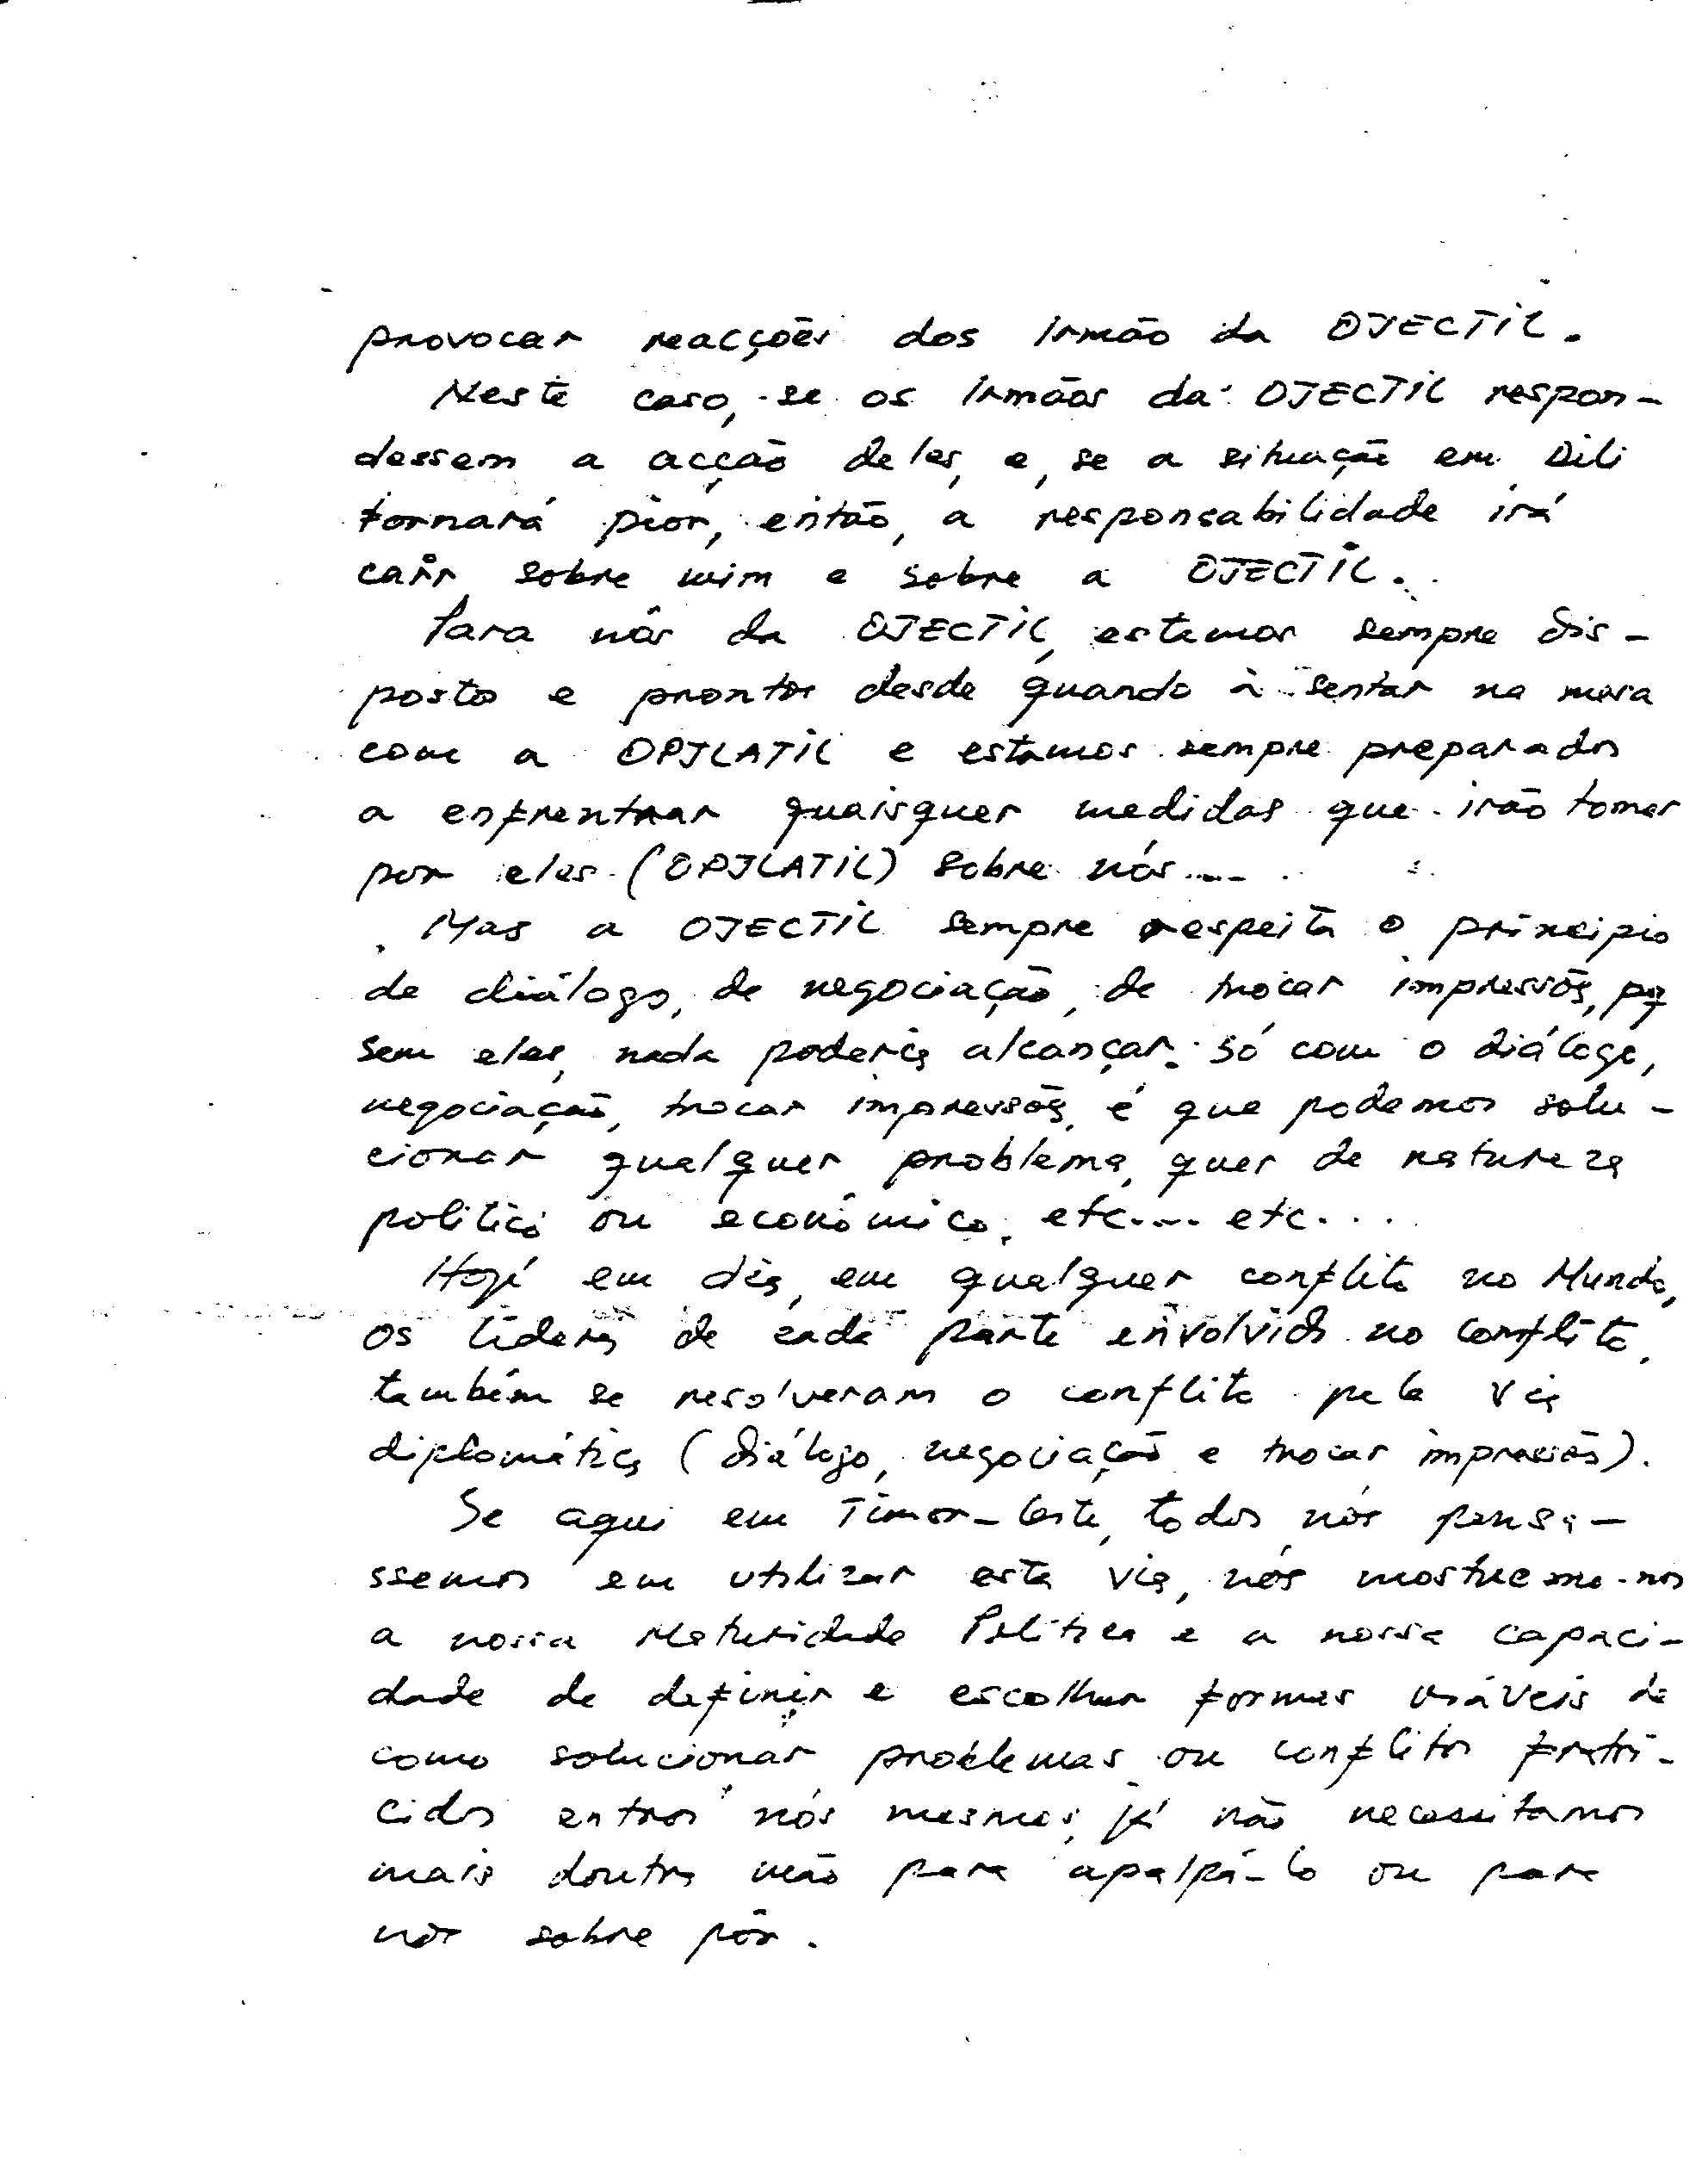 provocar reacções dos Irmão da OJECTIL.
Neste caso, se os Irmãos da OJECTIL respon-
dessem a acção deles, e, se a situação em Dili
tornará pior, então, a responsabilidade irá
cair sobre mim e sobre a OJECTIL.
Para nós da OJECTIL, estamos sempre dis-
posto e prontos desde quando à sentar na mesa
com a OPJLATIL e estamos sempre preparados
a enfrentrar quaisquer medidas que irão tomar
por eles (OPJLATIL) sobre nós....
Mas a OJECTIL sempre respeita o princípio
de diálogo, de negociação, de trocar impressões, pq
sem eles, nada poderia alcançar. Só com o diálogo,
negociação, trocar impressões, é que podemos solu-
cionar qualquer problema, quer de natureza
politico ou económico, etc.... etc....
Hoje em dia, em qualquer conflito no Mundo,
os lideres de cada parte envolvido no conflito,
também se resolveram o conflito pela via
diplomática (diálogo, negociação e trocar impressões).
Se aqui em Timor-Leste, todos nós pensa-
ssemos em utilizar esta via, nós mostremo-nos
a nossa Maturidade Política e a nossa capaci-
dade de definir e escolher formas viáveis de
como solucionar problemas ou conflitos fratri-
cidos entre nós mesmos, já não necessitamos
mais doutra mão para apalpá-lo ou para
nos sobre pôr.